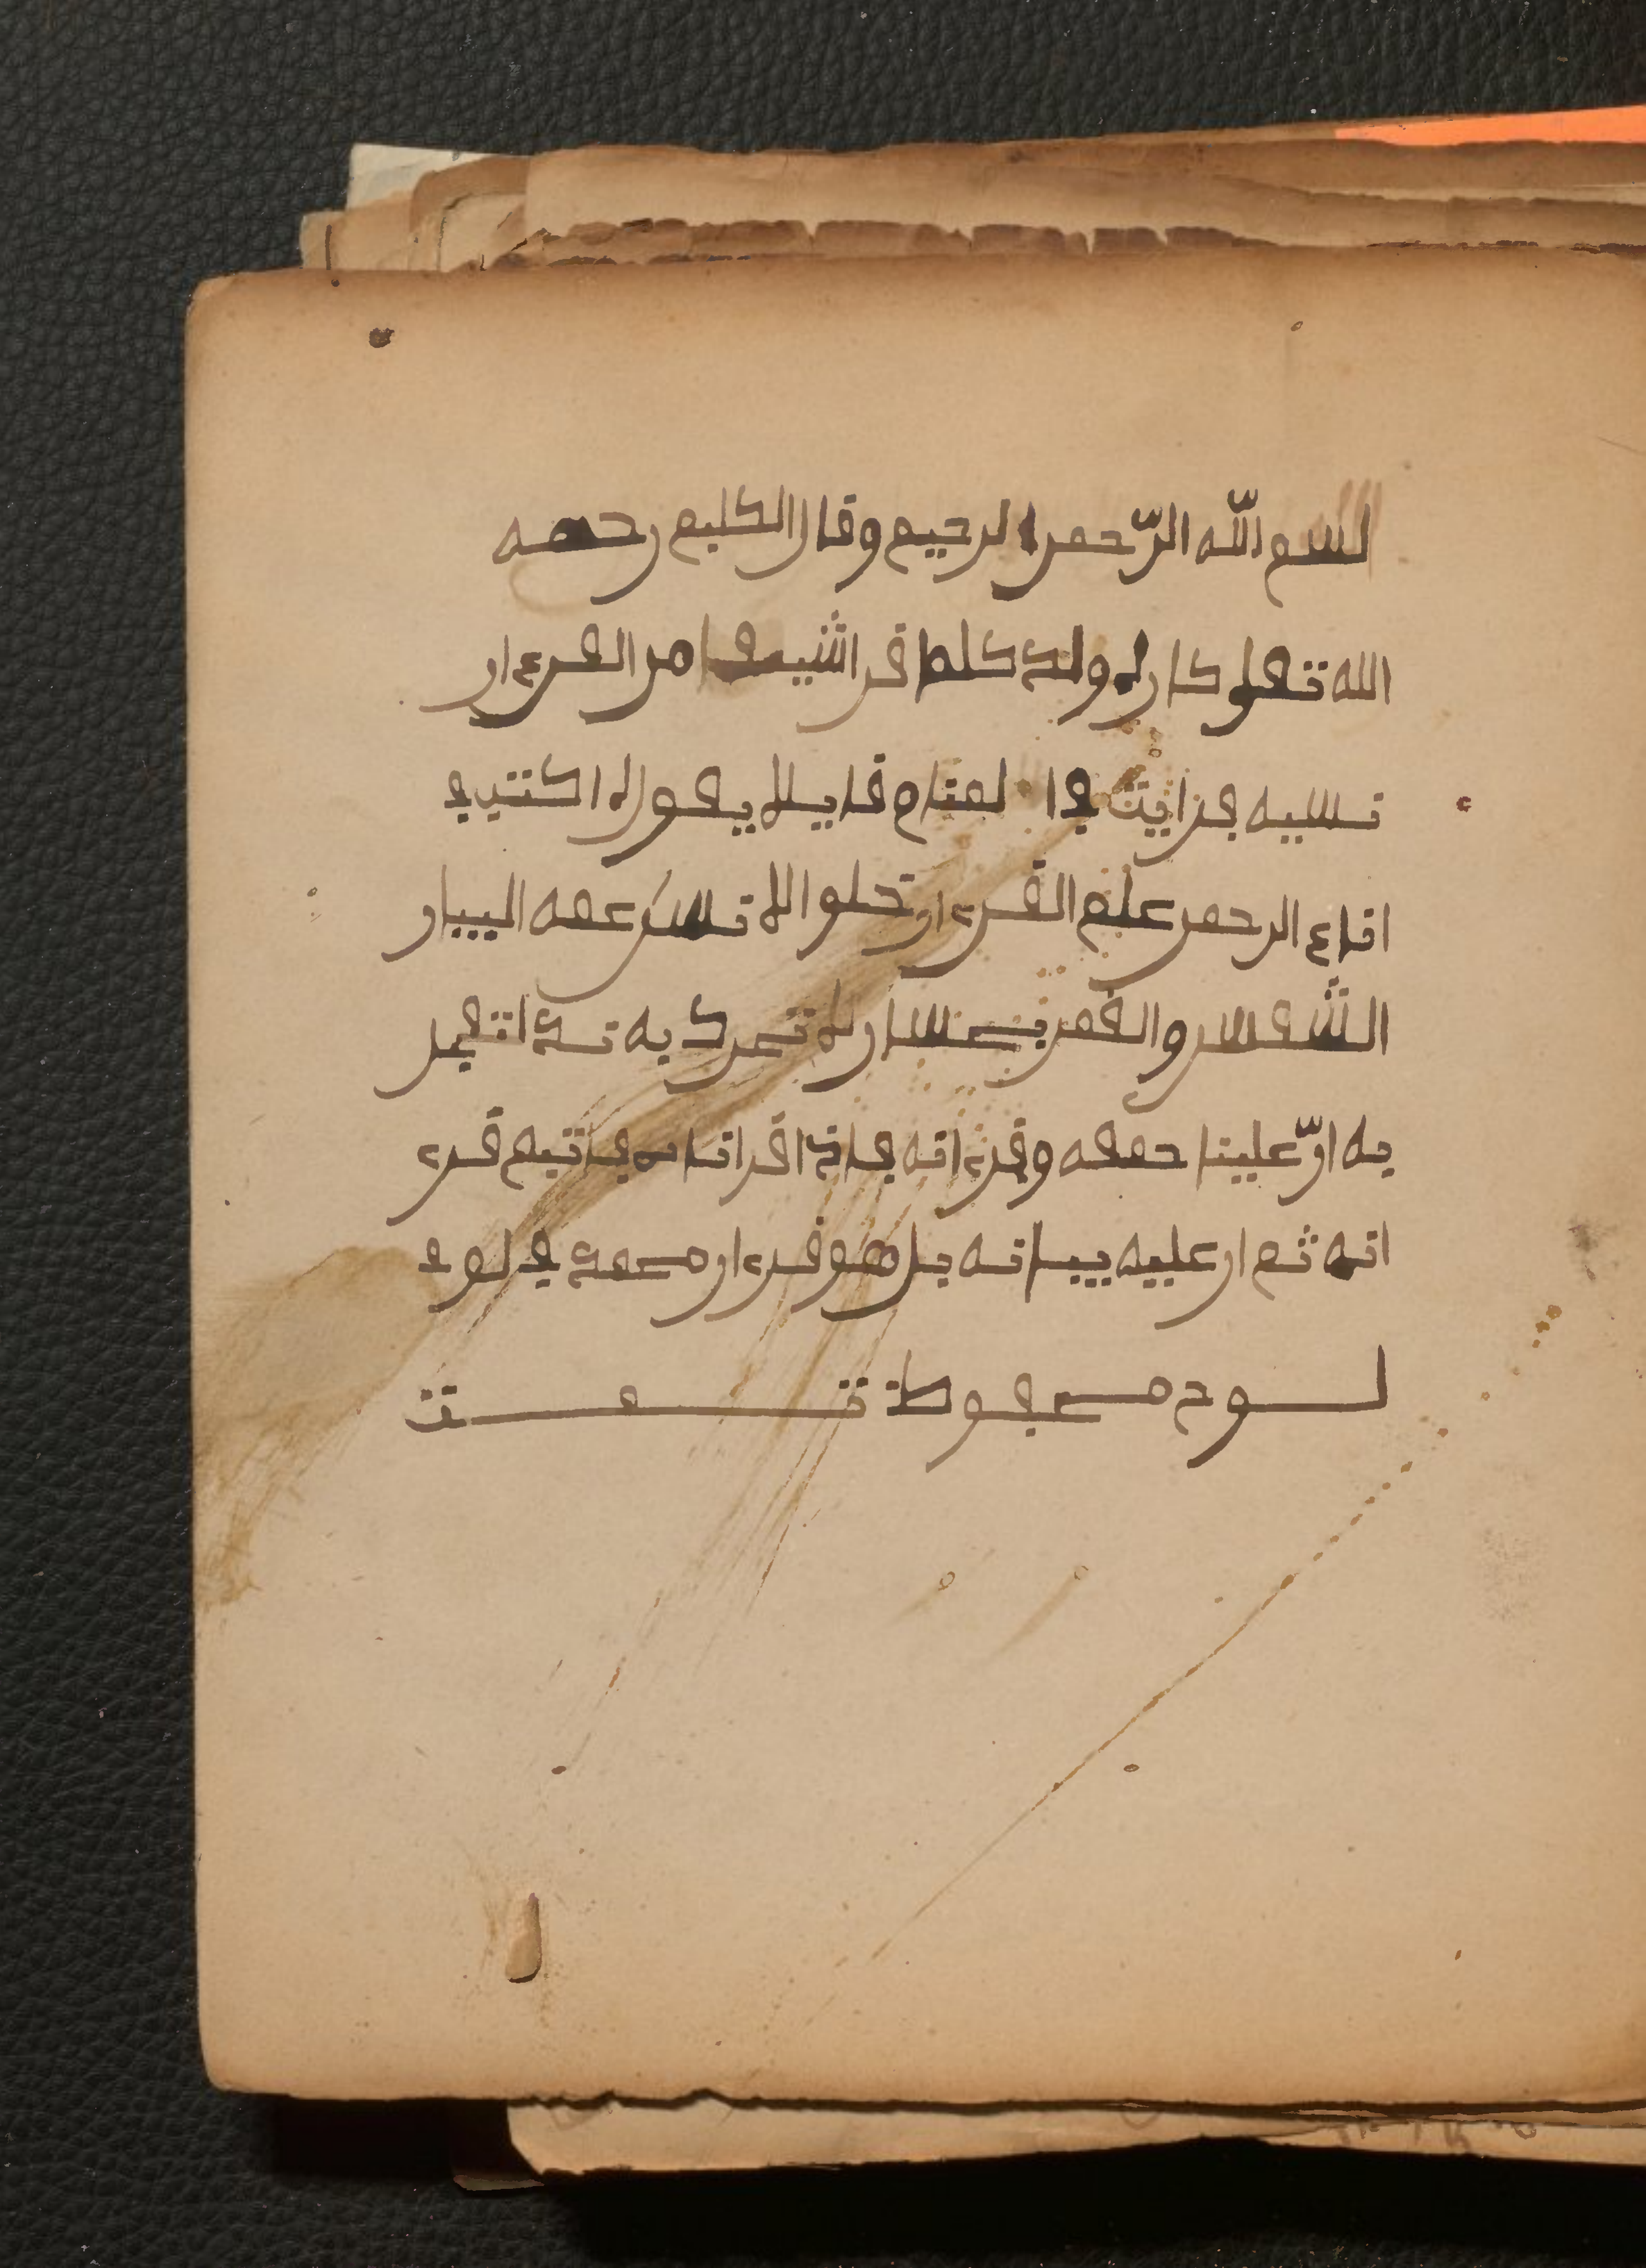 بسم الله الرّحمن الرحيم وقال الكلبي رحمه
الله تعلى كان له ولد كلما قرا شيئا من القرءان
نسيه فرايت في المنام قايلا يقول له اكتب في
اناء الرحمن علم القرءان خلق الانسان علمه البيان
الشمس والقمر بحسبان لا تحرك به لسانك لتعجل
به انّ علينا جمعه وقرءانه فاذا قراناه فاتبع قرء
انه ثم ان علينا بيانه بل هو قرءان مجيد في لوح
لوح محفوظ تمت